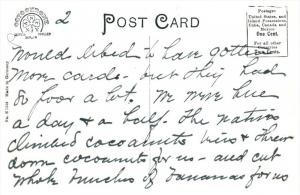 2
POST CARD
Postage:
United States, and
Island Possessions,
Cuba, Canada and
Mexico
One Cent.
For all other
Countries
Would liked to have gotten
more cards - but they had
so poor a lot. We were here
a day & a half. The natives
climbed cocoanuts trees & threw
down cocoanuts for us - and cut
whole bunches of bananas for us
Made in Germany